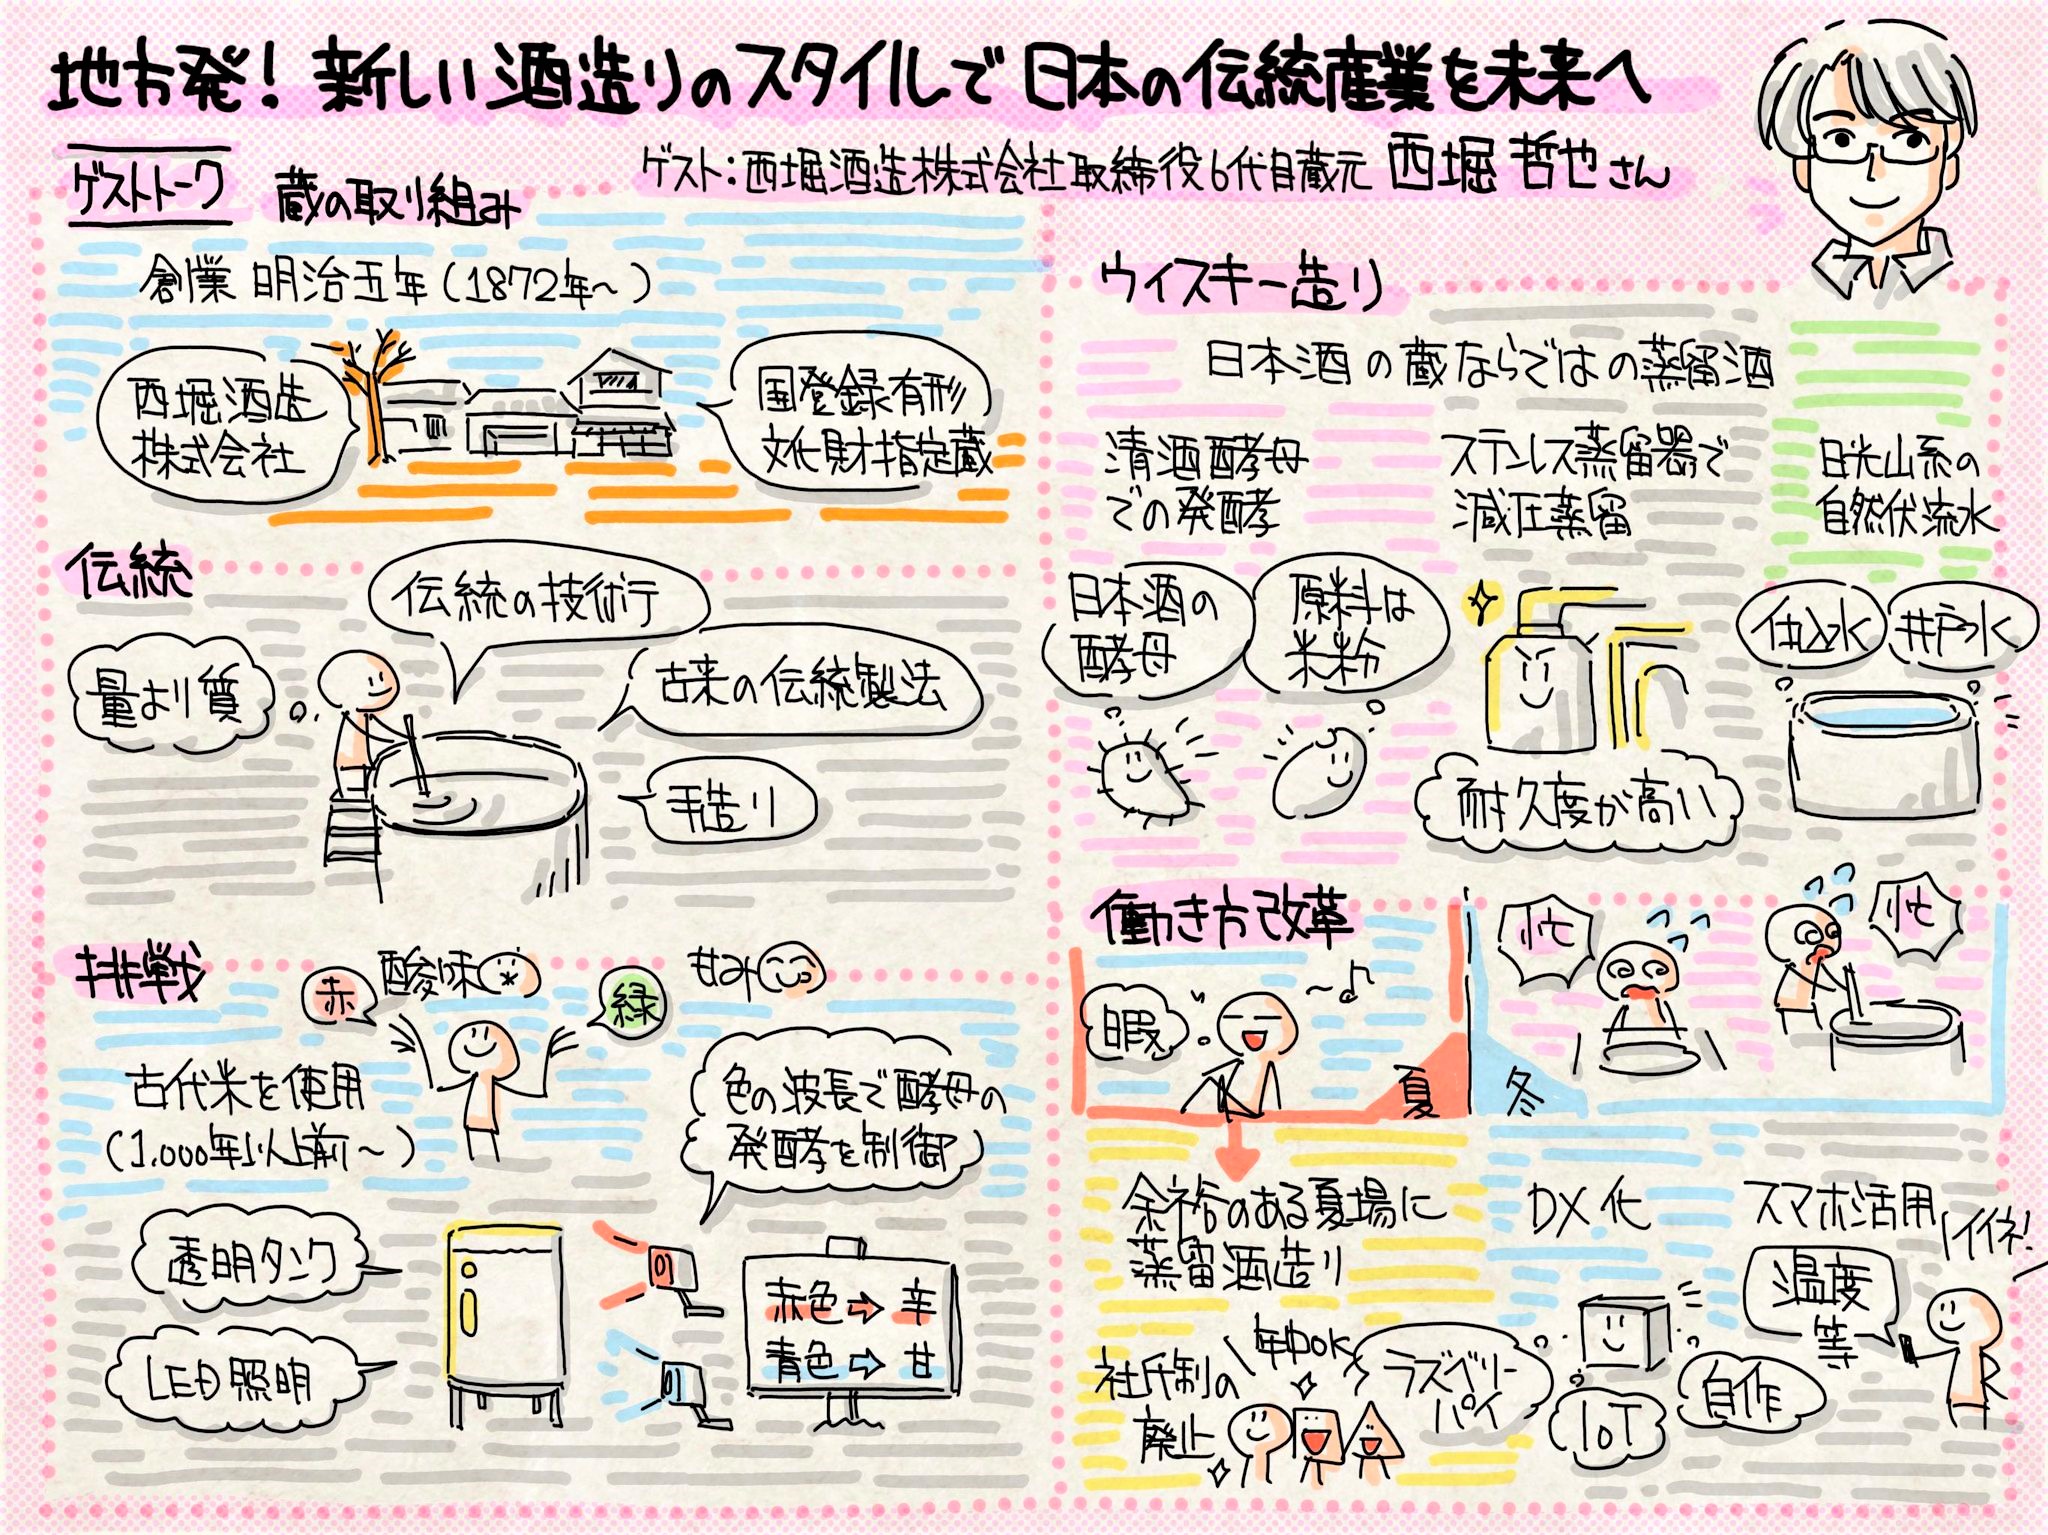 地方発！新しい酒造りのスタイルで日本の伝統産業を未来へ
ゲストトーク
蔵の取り組み
ゲスト：西堀酒造株式会社取締役6代目蔵元 西堀 哲也さん
創業 明治五年(1872年〜)
西堀酒造
株式会社
国登録有形
文化財指定蔵
伝統
伝統の技術
量より質
古来の伝統製法
手造り
挑戦
赤
酸味
緑
甘み
古代米を使用
(1,000年以上前〜)
色の波長で酵母の
発酵を制御
透明タンク
LED照明
赤色⇨辛
青色⇨甘
ウィスキー造り
日本酒の蔵ならではの蒸留酒
清酒酵母
での発酵
ステンレス蒸留器で
減圧蒸留
日光山系の
自然伏流水
日本酒の
酵母
原料は
米粉
仕込水
井戸水
耐久度が高い
働き方改革
暇
夏
忙
忙
冬
余裕のある夏場に
蒸留酒造り
社氏制の
廃止
年中OK
DX化
ラズベリー
パイ
IoT
自作
スマホ活用
温度
等
イイネ!